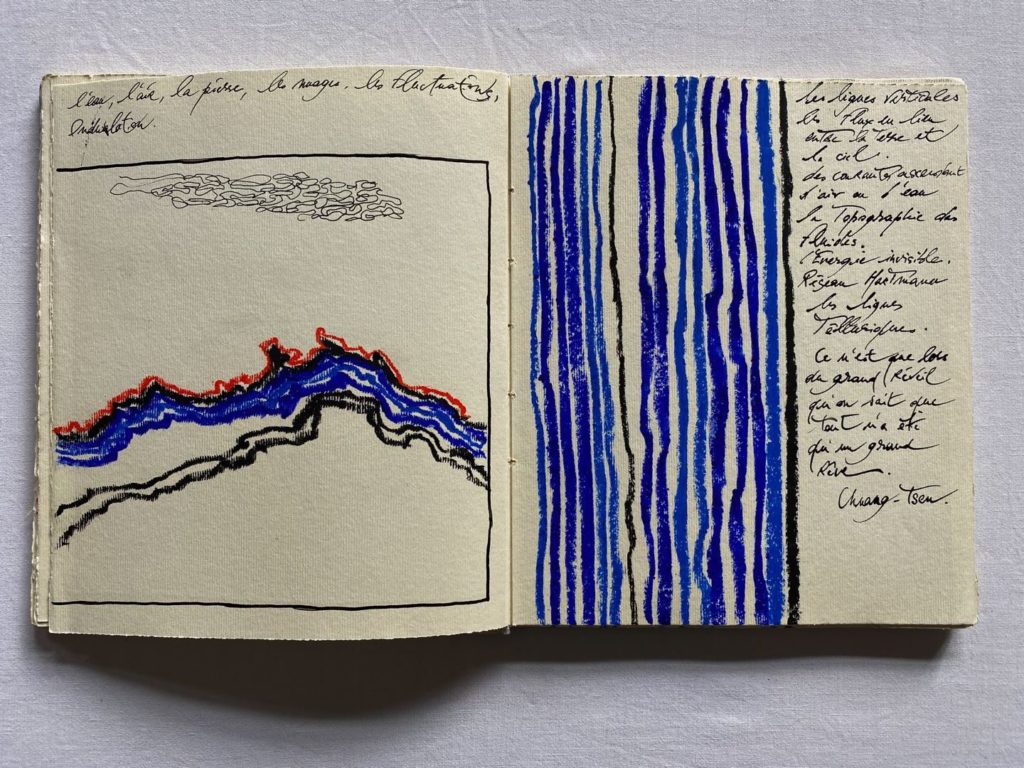 l'eau, l'air, la pierre, les nuages, les fluctuations,
Ondulation.
Les lignes verticales
les flux en lien
entre la terre et
le ciel.
des courants ascendant
d'air ou l'eau
la Topographie des
fluides.
l'Energie invisible.
Réseau Hartmann
les lignes
Telluriques.
Ce n'est que lors
du grand Réveil
qu'on sait que
tout n'a été
qu'un grand
Rêve.
Chuang-Tseu.